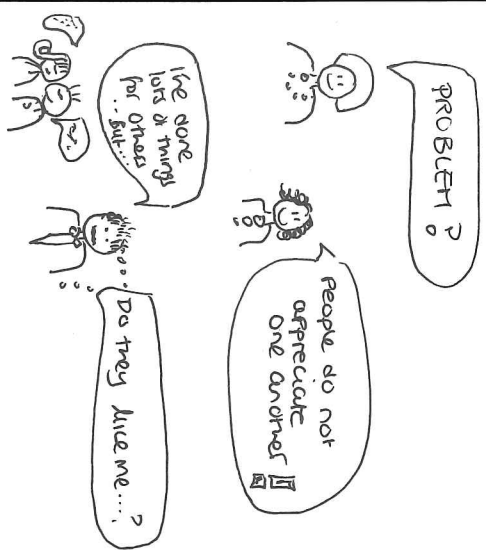 PROBLEM ?
People do not
appreciate
one another !!
I've done
lots of things
for others
... But....
Do they like me....?